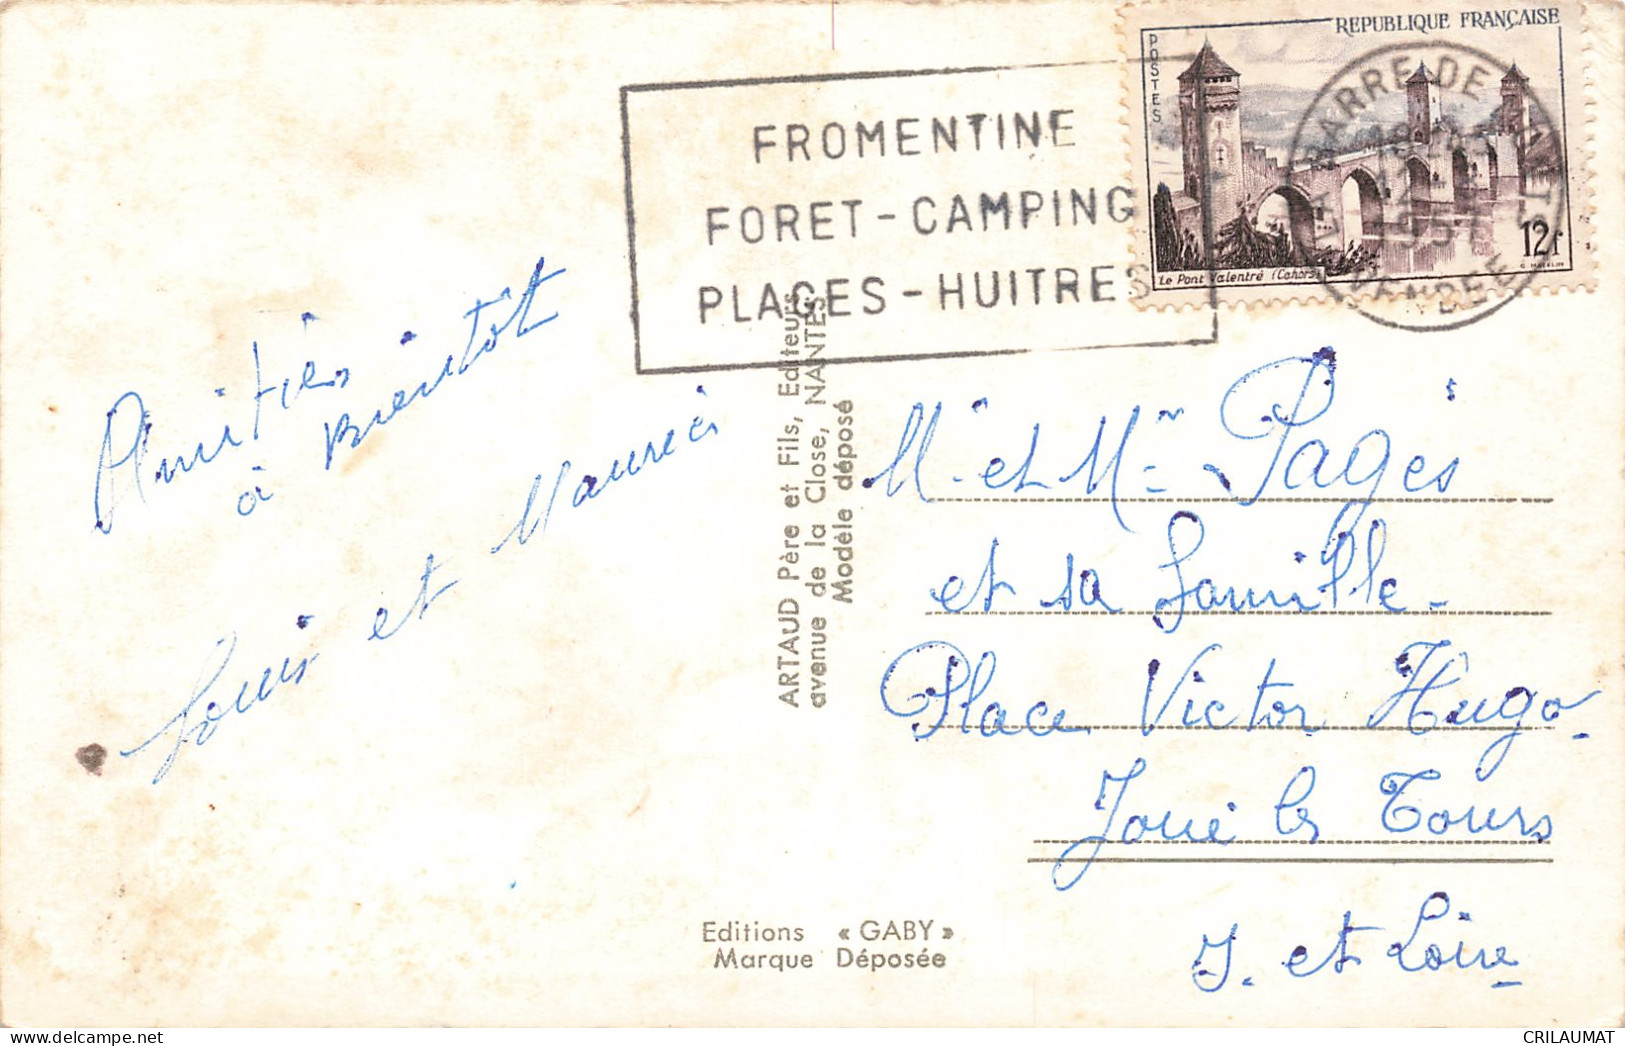 REPUBLIQUE FRANÇAISE
POSTES
12f
Le Pont Valentré (Cahors)
LA BARRE-DE-MONTS
VENDEE
FROMENTINE
FORET - CAMPING
PLAGES - HUITRES
Amitiés
à Bientot
Louis et Maurice
ARTAUD Père et Fils, Editeurs
avenue de la Close, NANTES
Modèle déposé
Mr et Mme Pagès
et sa famille
Place Victor Hugo
Joué les Tours
I. et Loire
Editions « GABY »
Marque Déposée
CRILAUMAT